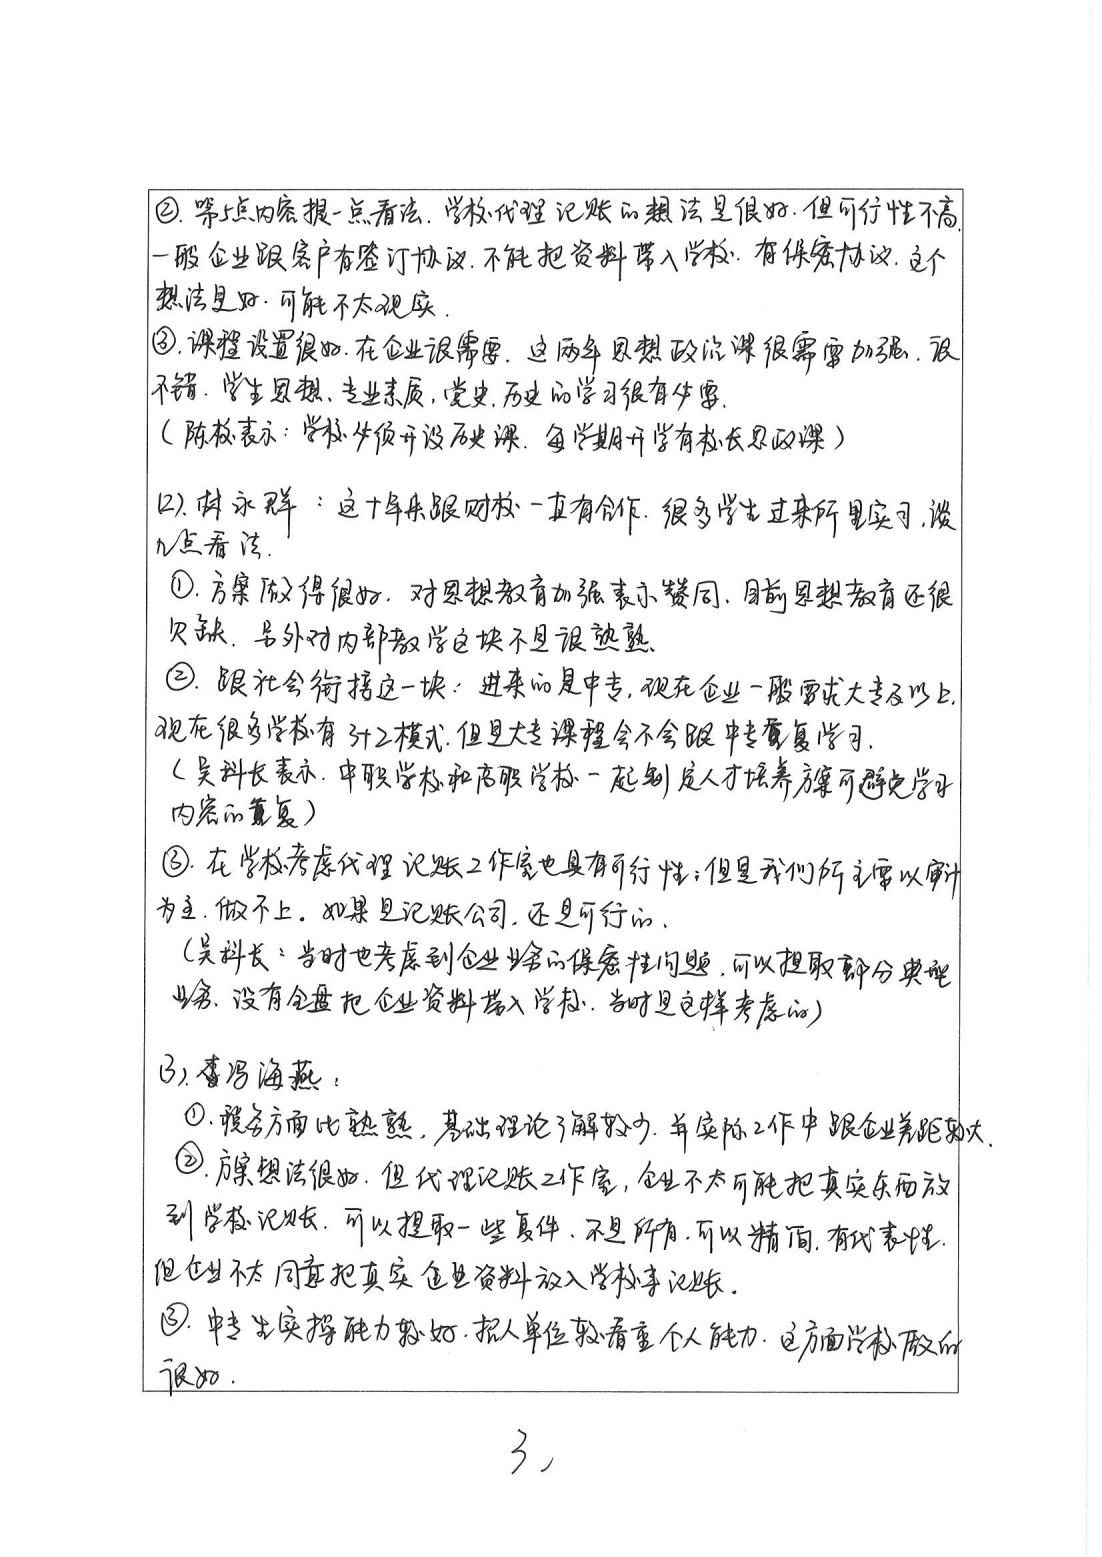 ②. 第5点内容提一点看法. 学校代理记账的想法是很好. 但可行性不高.
一般企业跟客户有签订协议. 不能把资料带入学校. 有保密协议. 这个
想法是好. 可能不太现实.
③. 课程设置很好. 在企业很需要. 这两年思想政治课很需要加强. 很
不错. 学生思想、专业素质, 党史, 历史的学习很有必要.
(陈校表示: 学校必须开设历史课. 每学期开学有校长思政课)
(2). 林永群: 这十年来跟财校一直有合作. 很多学生过来所里实习, 谈
几点看法.
①. 方案做得很好. 对思想教育加强表示赞同. 目前思想教育还很
欠缺. 另外对内部教学这块不是很熟熟.
②. 跟社会衔接这一块: 进来的是中专, 现在企业一般要求大专及以上.
现在很多学校有3+2模式. 但是大专课程会不会跟中专重复学习.
(吴科长表示. 中职学校和高职学校一起制定人才培养方案可避免学习
内容的重复)
③. 在学校考虑代理记账工作室也具有可行性; 但是我们所主要以审计
为主. 做不上。如果是记账公司. 还是可行的.
(吴科长: 当时也考虑到企业业务的保密性问题, 可以提取部分典型
业务. 没有全盘把企业资料带入学校. 当时是这样考虑的)
(3). 冯海燕:
①. 税务方面比熟熟, 基础理论了解较少. 并实际工作中跟企业差距较大.
②. 方案想法很好. 但代理记账工作室, 企业不太可能把真实东西放
到学校记账. 可以提取一些复件. 不是所有. 可以精简. 有代表性.
但企业不太同意把真实企业资料放入学校来记账。
③. 中专生实操能力较好. 招人单位较看重个人能力. 这方面学校做的
很好.
3、